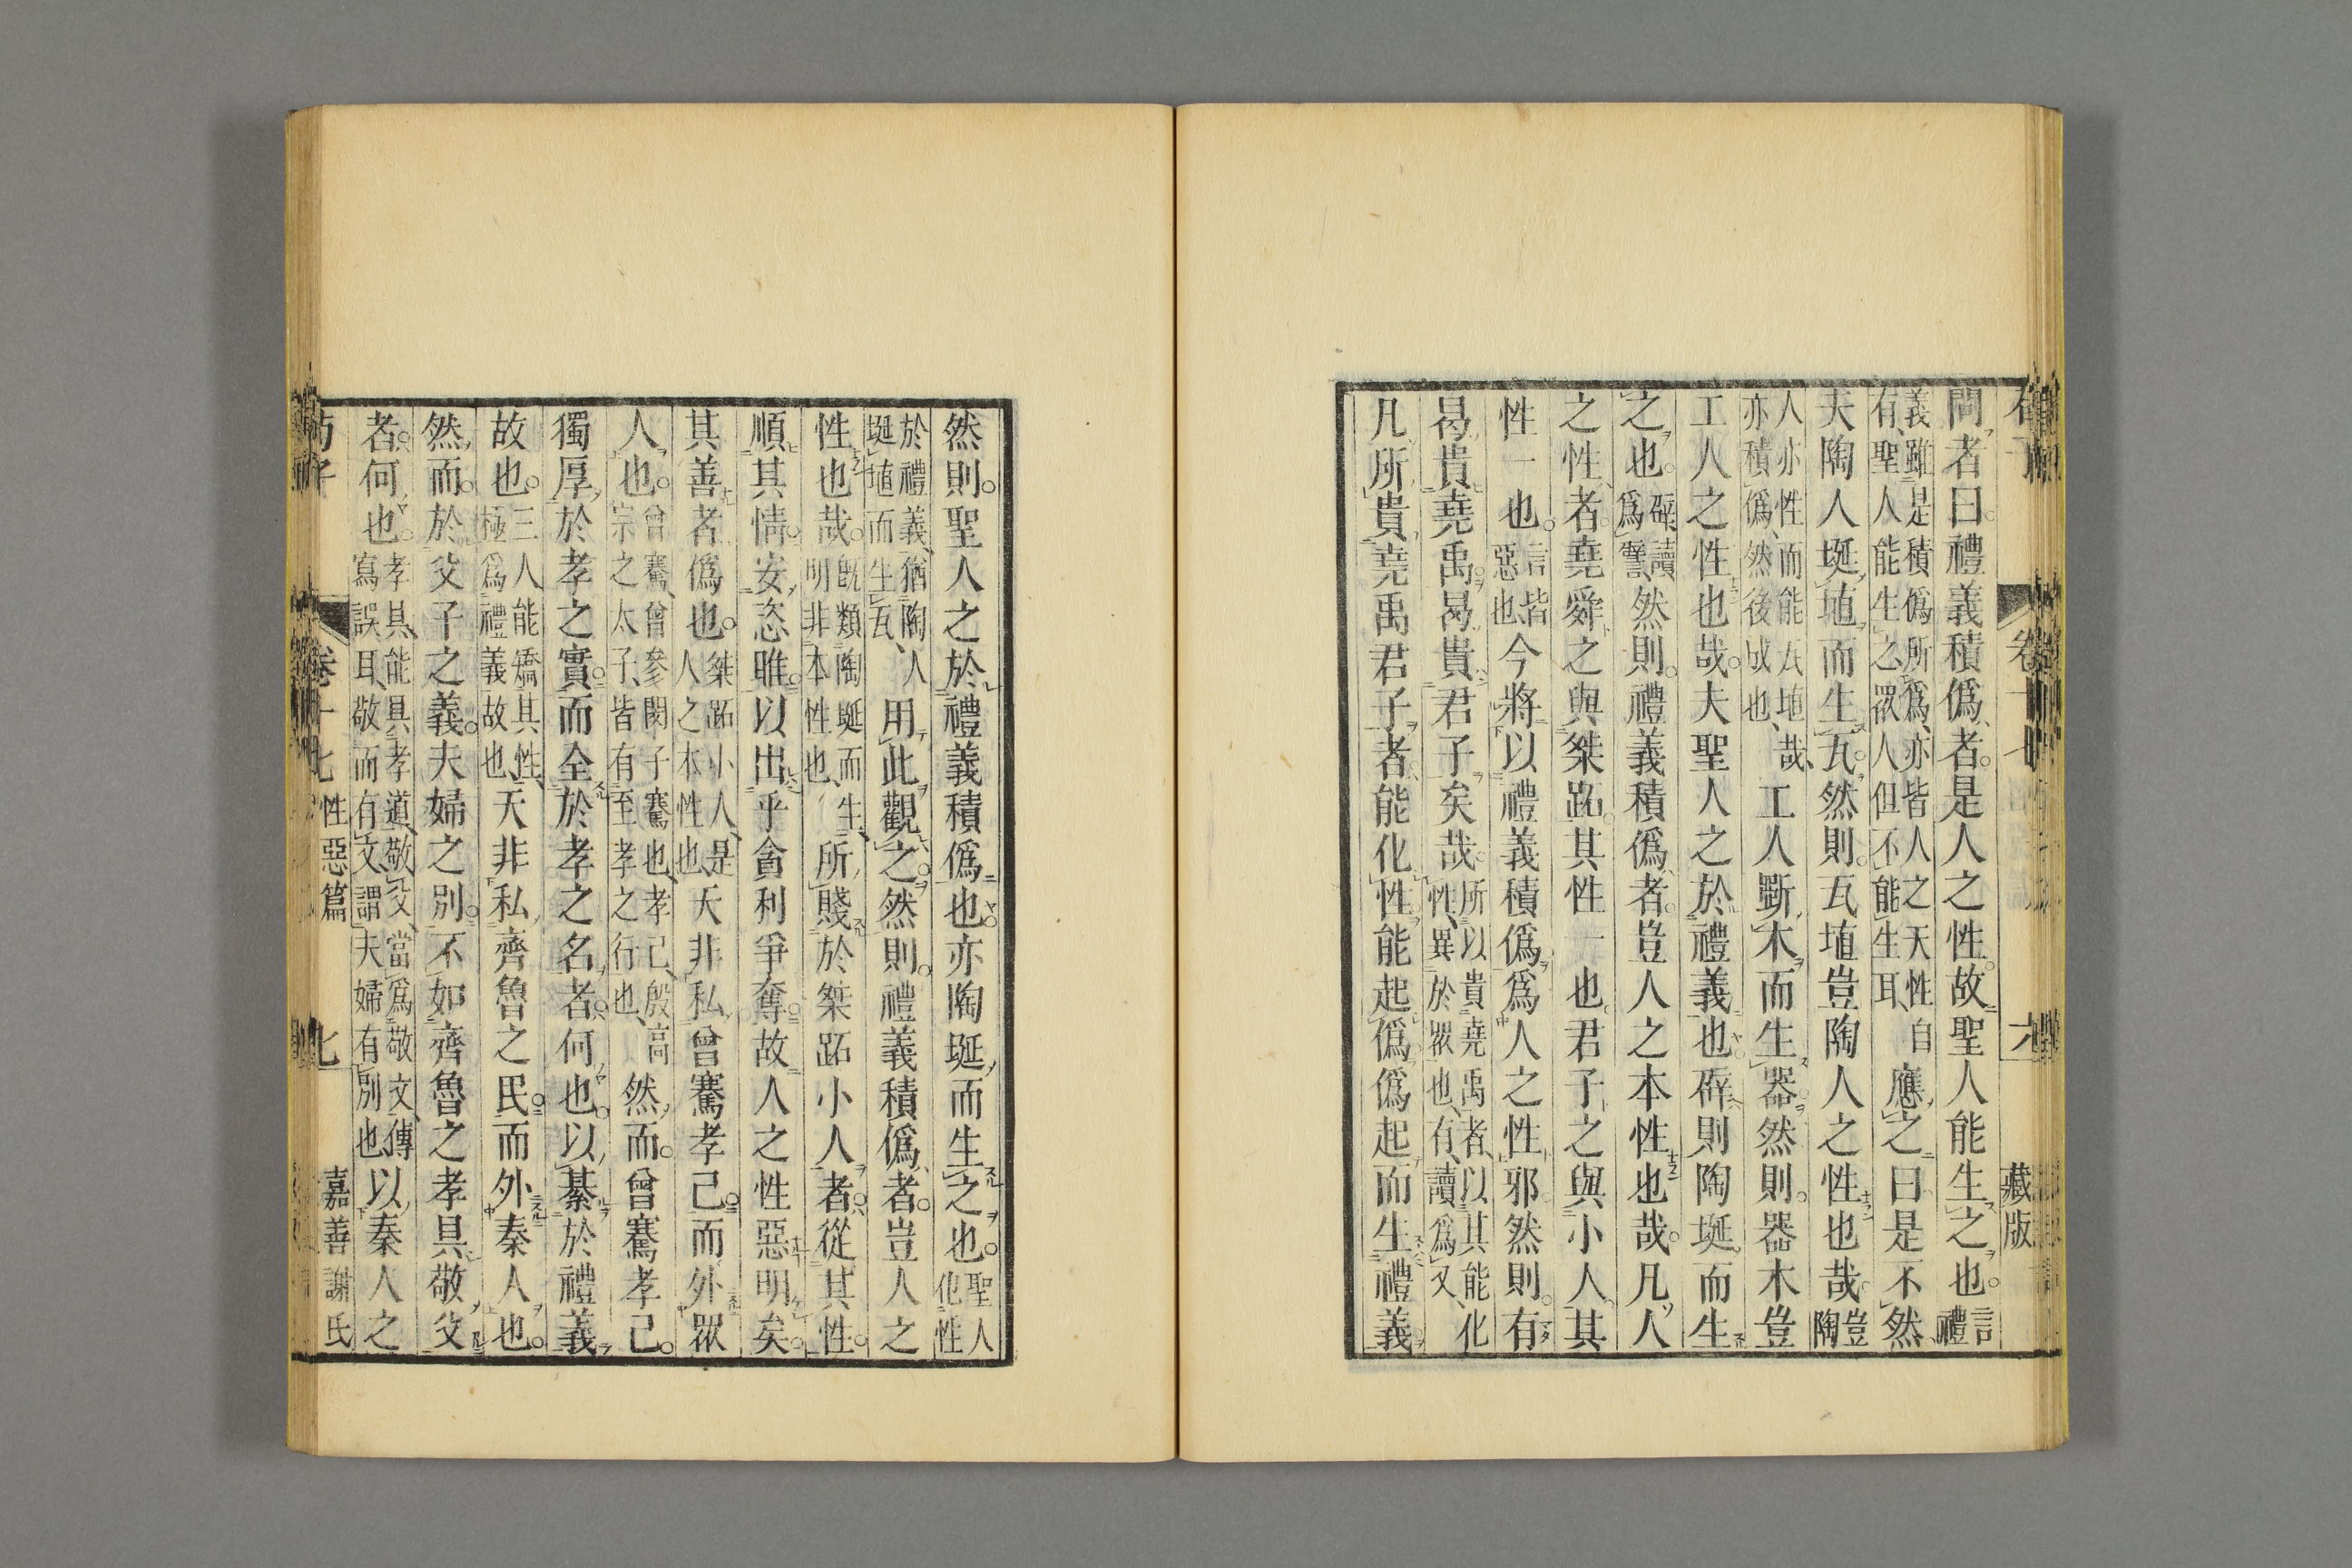 問者曰禮義積僞者是人之性故聖人能生之也言禮
義雖是積僞所爲亦皆人之天性自有聖人能生之眾人但不能生耳應之曰是不然
夫陶人埏埴而生瓦然則瓦埴豈陶人之性也哉豈陶
人亦性而能瓦埴哉亦積僞然後成也工人斲木而生器然則器木豈
工人之性也哉夫聖人之於禮義也辟則陶埏而生
之也辟讀爲譬然則禮義積僞者豈人之本性也哉凡人
之性者堯舜之與桀跖其性一也君子之與小人其
性一也言皆惡也今將以禮義積僞爲人之性邪然則有
曷貴堯禹曷貴君子矣哉所以貴堯禹者以其能化性異於眾也有讀爲又
凡所貴堯禹君子者能化性能起僞僞起而生禮義
卷十七
藏版
然則聖人之於禮義積僞也亦陶埏而生之也聖人化性
於禮義猶陶人埏埴而生瓦用此觀之然則禮義積僞者豈人之
性也哉既類陶埏而生明非本性也所賤於桀跖小人者從其性
順其情安恣睢以出乎貪利爭奪故人之性惡明矣
其善者僞也桀跖小人是人之本性也天非私曾騫孝己而外眾
人也曾騫曾參閔子騫也孝己殷高宗之太子皆有至孝之行也然而曾騫孝己
獨厚於孝之實而全於孝之名者何也以綦於禮義
故也三人能矯其性極爲禮義故也天非私齊魯之民而外秦人也
然而於父子之義夫婦之別不如齊魯之孝具敬父
者何也孝具能具孝道敬父當爲敬文傳寫誤耳敬而有文謂夫婦有別也以秦人之
荀子
卷十七
性惡篇
七
嘉善謝氏